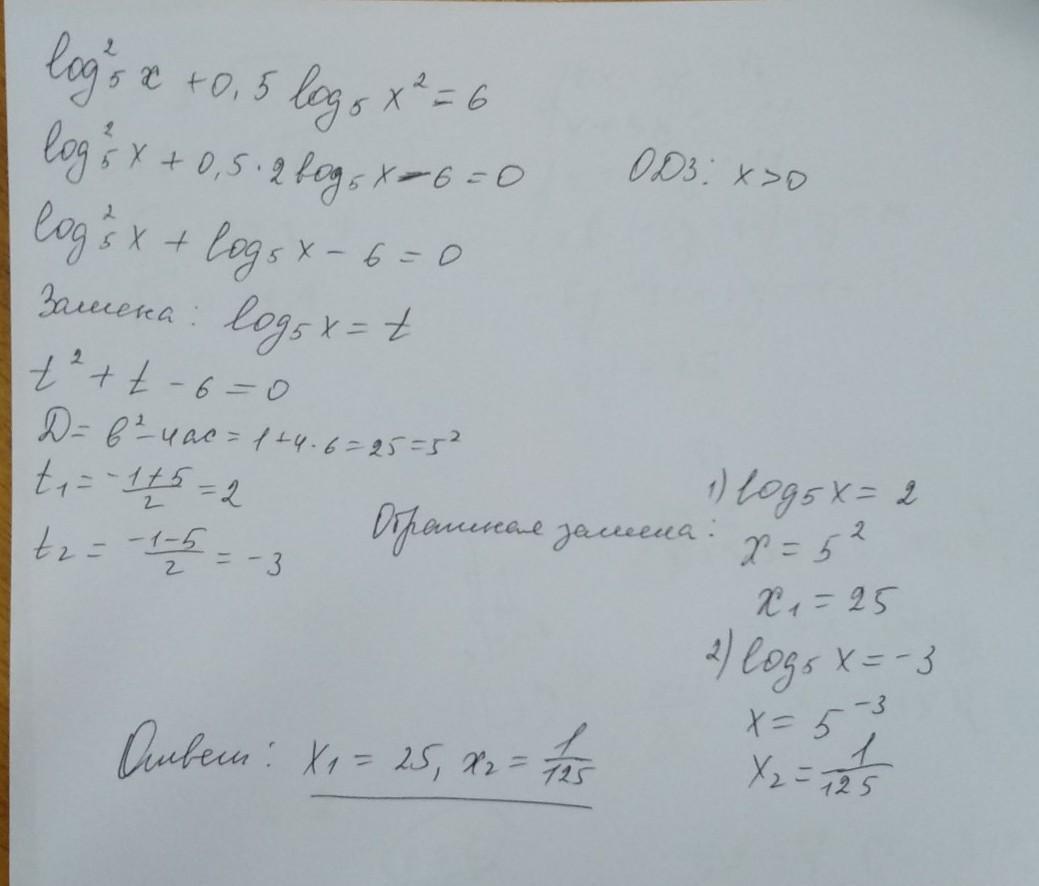 log²₅ x + 0,5 log₅ x² = 6
log²₅ x + 0,5 · 2 log₅ x - 6 = 0
ОДЗ: x > 0
log²₅ x + log₅ x - 6 = 0
Замена: log₅ x = t
t² + t - 6 = 0
D = b² - 4ac = 1 + 4 · 6 = 25 = 5²
t₁ = (-1+5)/2 = 2
t₂ = (-1-5)/2 = -3
Обратная замена:
1) log₅ x = 2
x = 5²
x₁ = 25
2) log₅ x = -3
x = 5⁻³
x₂ = 1/125
Ответ: x₁ = 25, x₂ = 1/125